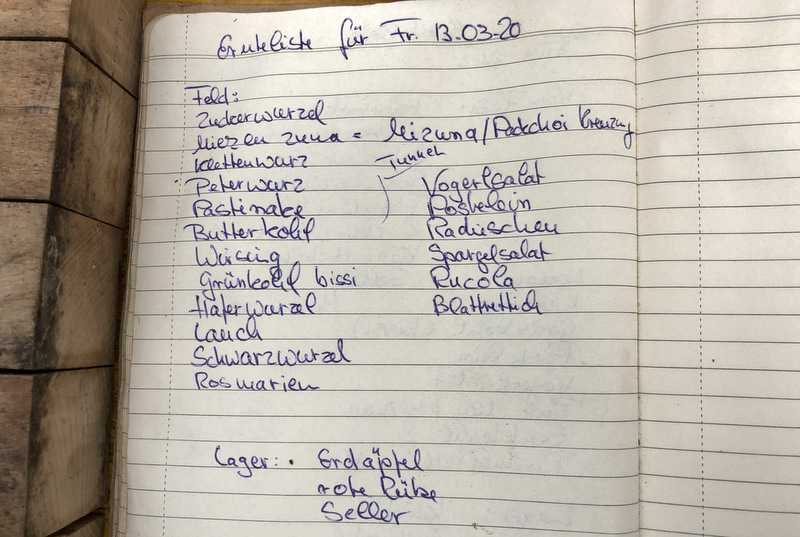 Ernteliste für Fr. 13.03.20
Feld:
Zuckerwurzel
Miezen zuna = Mizuna/Packchoi Kreuzung
Klettenwurz
Peterwurz
Pastinake
Butterkohl
Wirsing
Grünkohl bissi
Haferwurzel
Lauch
Schwarzwurzel
Rosmarien
Tunnel
Vogerlsalat
Röslein
Radieschen
Spargelsalat
Rucola
Blattrettich
Lager: • Erdäpfel
rote Rübe
Seller